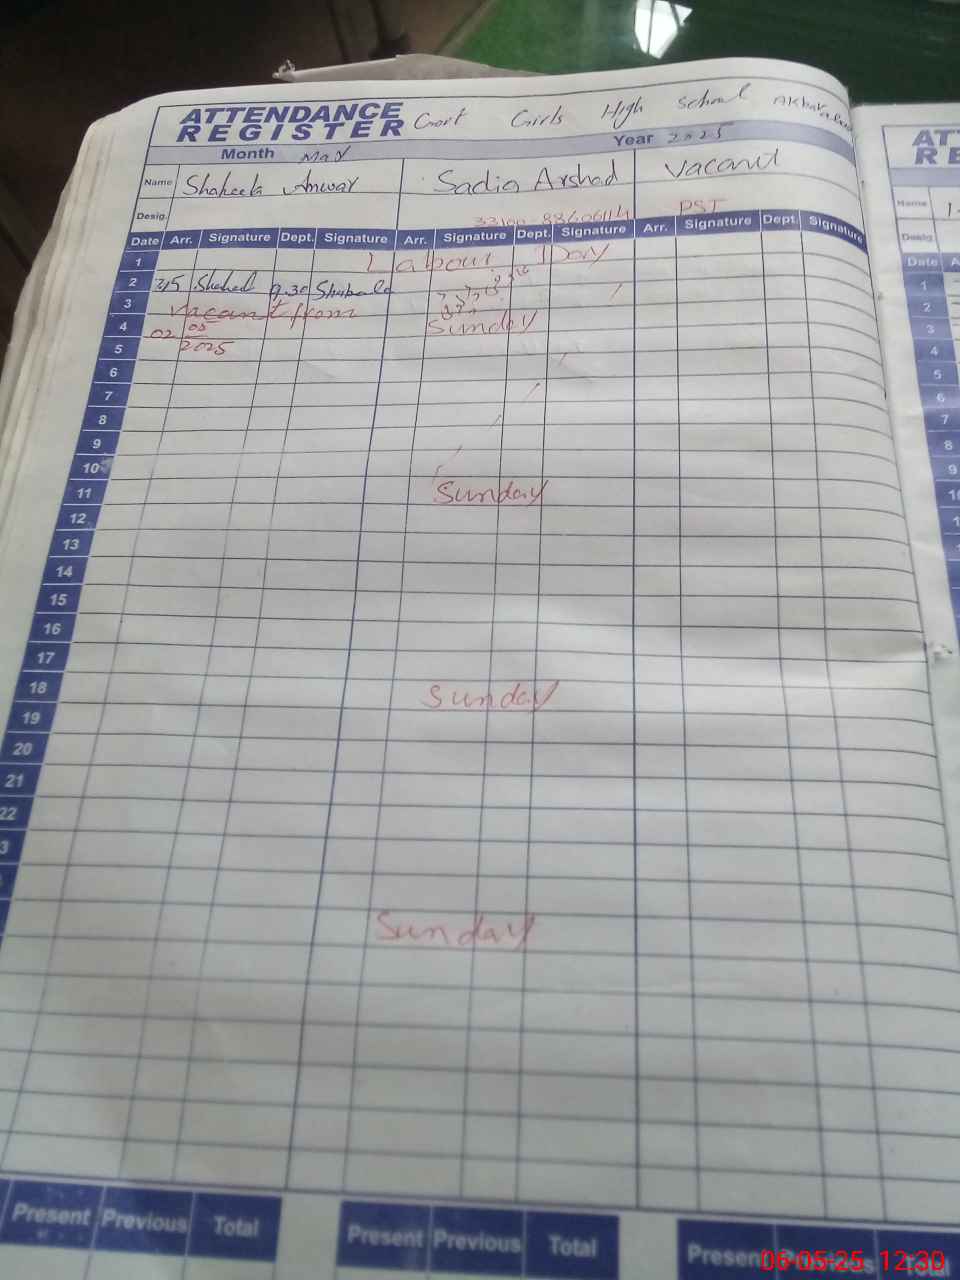 ATTENDANCE REGISTER Govt Girls High School
Month May Year 2025
Name Shaheela Anwar Sadia Arshad Vacant
Desig. PST
Date Arr. Signature Dept. Signature Arr. Signature Dept. Signature Arr. Signature Dept. Signature
1 Labour Day
2 9.30
3 Vacant from
4 02 05 Sunday
5 2025
6
7
8
9
10
11 Sunday
12
13
14
15
16
17
18 Sunday
19
20
21
22
3
Sunday
Present Previous Total Present Previous Total Present Total
ATT
RE
Name
Desig.
Date A
1
2
3
4
5
6
7
8
9
06-05-25 12:30